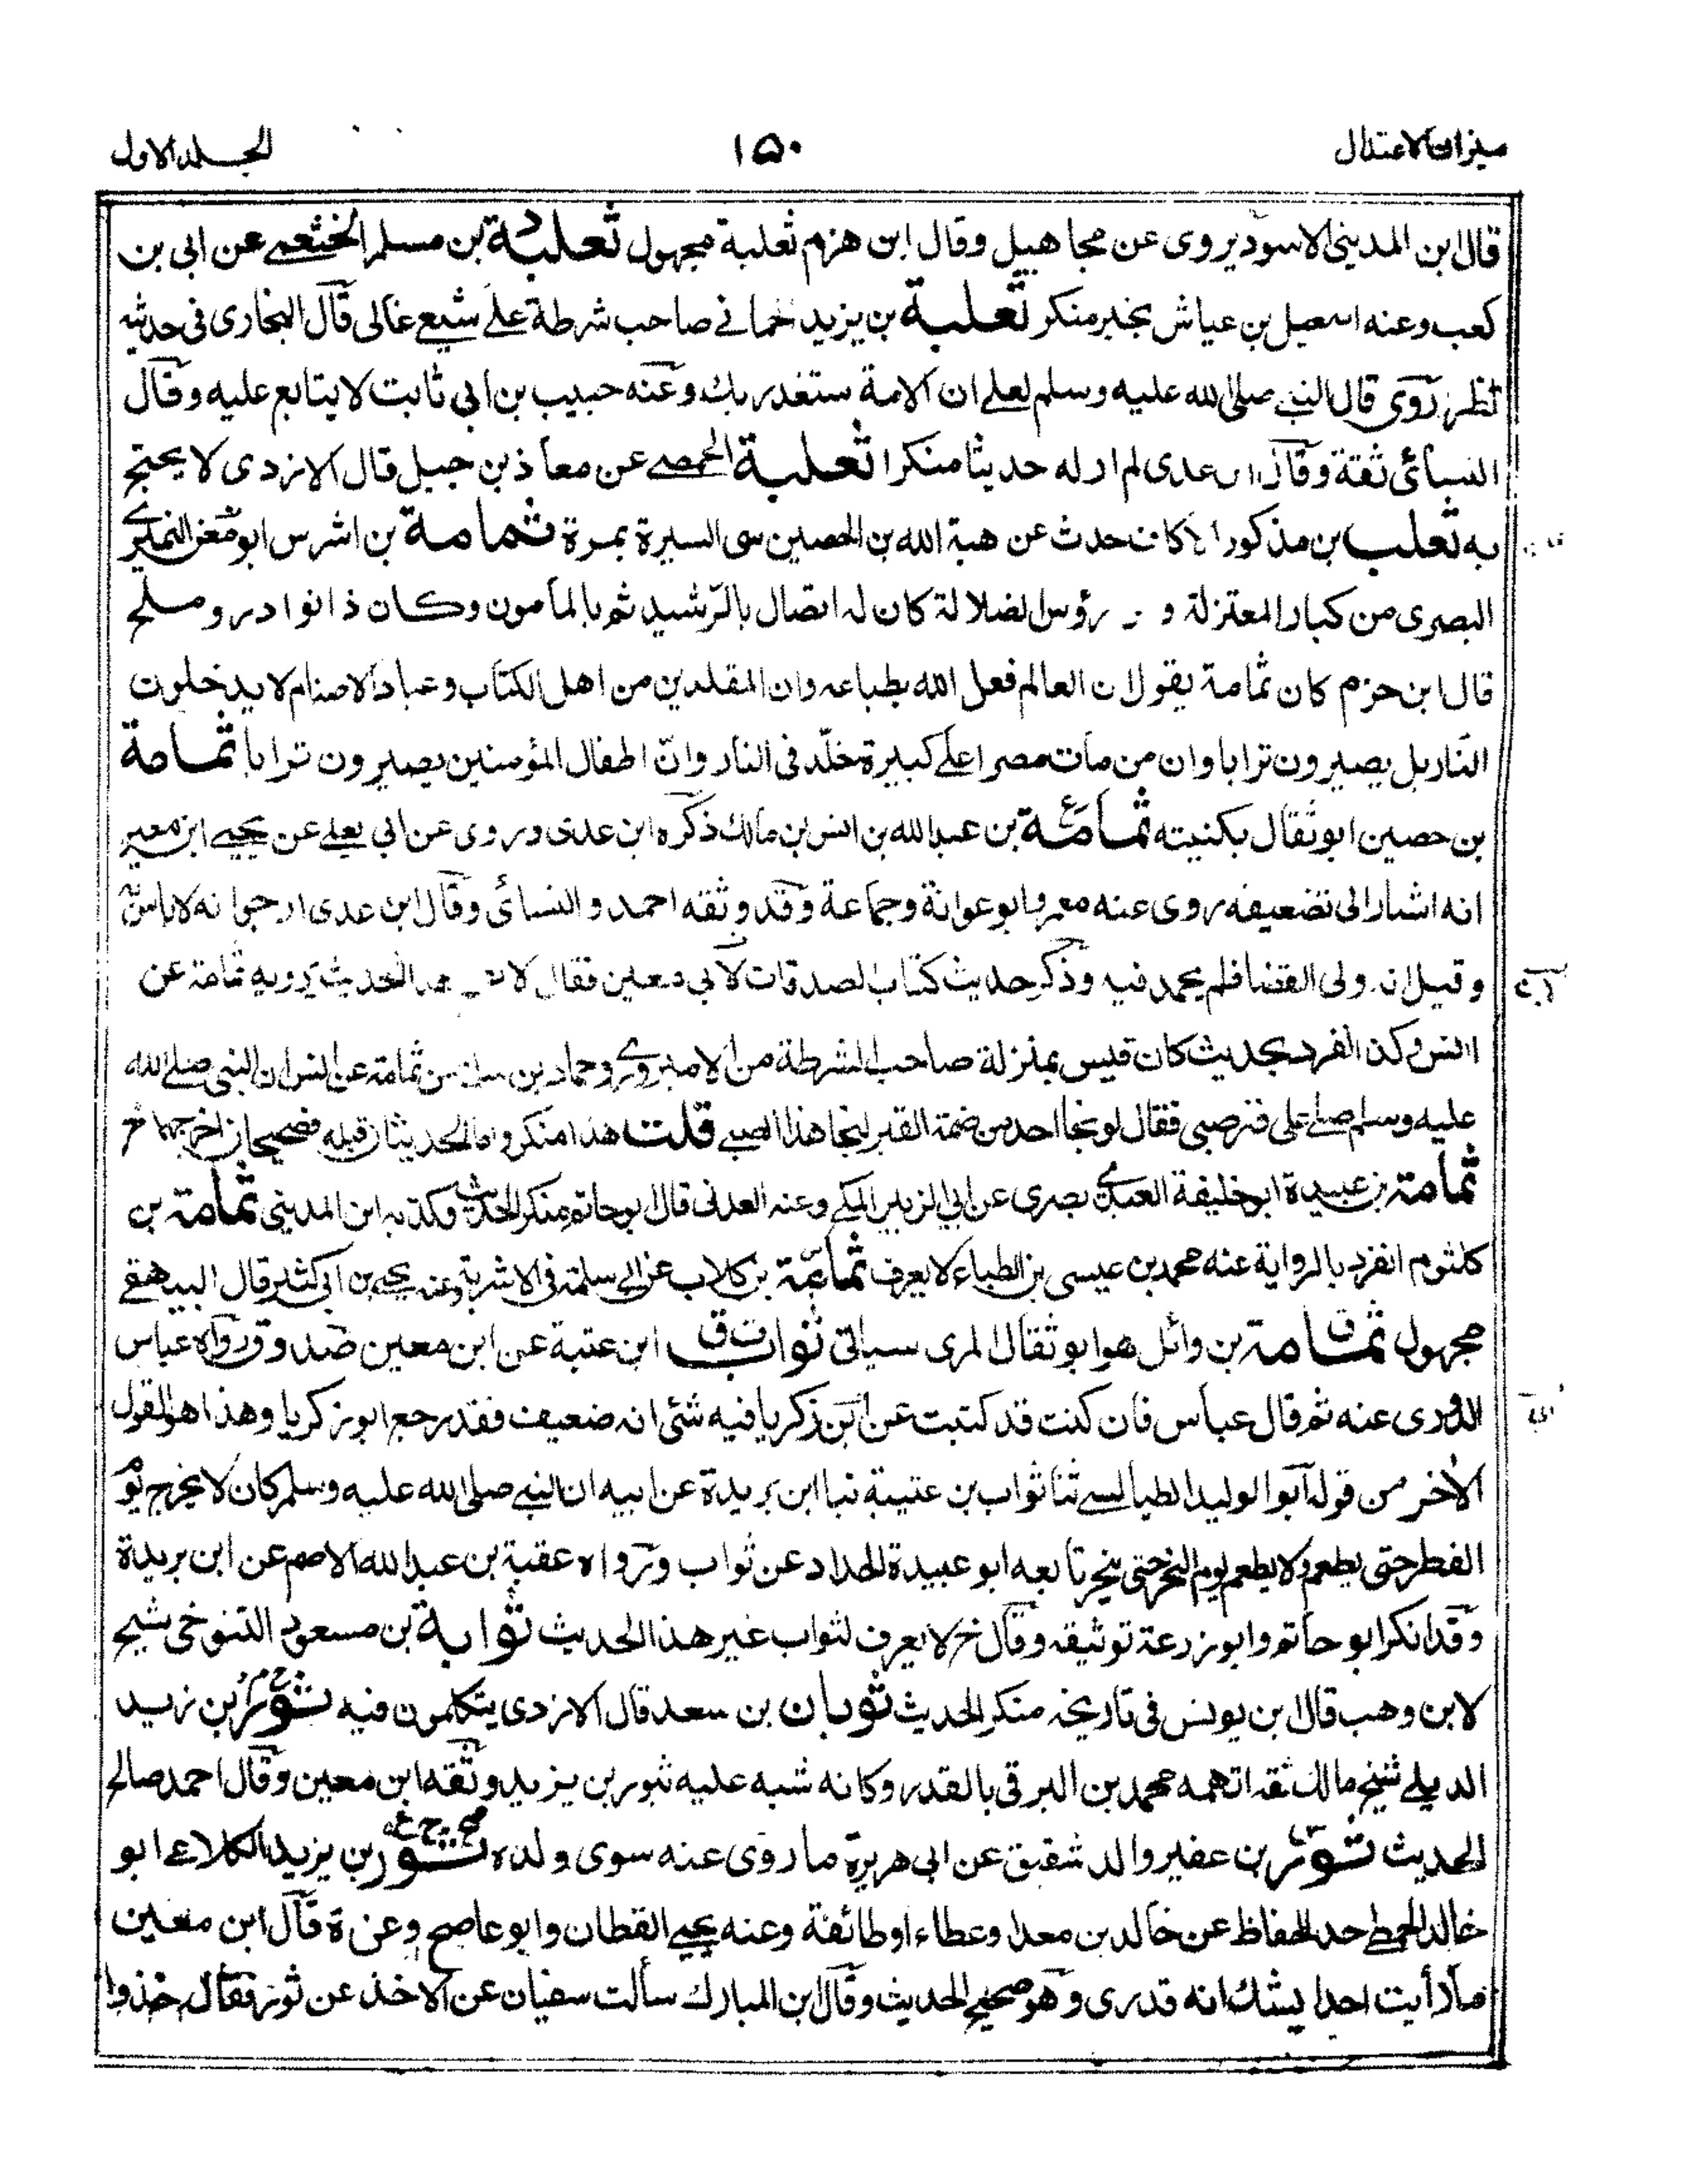 ميزان الاعتدال
١٥٠
الجلد الاول
قال ابن المديني الاسود يروى عن مجاهيل وقال ابن هزم ثعلبة مجهول ثعلبة بن مسلم الخثعمى عن ابى بن
كعب وعنه اسمعيل بن عياش بخبر منكر ثعلبة بن يزيد حمانے صاحب شرطة علے شيعى غالى قال البخارى فى حديثه
نظر روى قال النبى صلى الله عليه وسلم لعلے ان الامة ستغدر بك وعنه حبيب بن ابى ثابت لا يتابع عليه وقال
النسائى ثقة وقال ابن عدى لم ار له حديثا منكرا ثعلبة الحمصے عن معاذ بن جبيل قال الازدى لا يحتج
به ثعلب بن مذكور الاكاف حدث عن هبة الله بن الحصين سى السيرة بمرة ثمامة بن اشرس ابو معن النميرى
البصرى من كبار المعتزلة و رؤس الضلالة كان له اتصال بالرّشيد ثم بالمأمون وكان ذا نوادر وملح
قال ابن حزم كان ثمامة يقول ان العالم فعل الله بطباعه وان المقلدين من اهل الكتاب وعباد الاصنام لا يدخلون
النار بل يصيرون ترابا وان من مات مصرا علے كبيرة خلّد فى النار وانّ اطفال المؤمنين يصيرون ترابا ثمامة
بن حصين ابو ثفال بكنيته ثمامة بن عبد الله بن انس بن مالك ذكره ابن عدى وروى عن ابى يعلے عن يحيے ابن معين
انه اشار الى تضعيفه روى عنه معمر وابو عوانة وجماعة وقد وثقه احمد والنسائى وقال ابن عدى ارجو انه لا باس به
وقيل انه ولى القضا فلم يحمد فيه وذكر حديث كتاب الصدقات لابى معين فقال لا الحديث يرويه ثمامة عن
انس وكذا الفرد بحديث كان قيس بمنزلة صاحب الشرطة من الامير وروى حماد بن عن ثمامة عن انس ان النبى صلے الله
عليه وسلم صلے على قبر صبى فقال لو نجا احد من ضمة القبر لنجا هذا الصبے قلت هذا منكر واما الحديثان قبله فصحيحان اخرجهما خ
ثمامة بن عبيدة ابو خليفة العبدى بصرى عن ابى الزبير المكے وعنه العدنى قال ابو حاتم منكر الحديث وكذبه ابن المدينى ثمامة بن
كلثوم انفرد بالرواية عنه محمد بن عيسى بن الطباء لا يعرف ثمامة بن كلاب عن ابى سلمة فى الاشربة وعنه يحيے بن ابى كثير قال البيهقے
مجهول ثمامة بن وائل هو ابو ثفال المرى سياتى ثواب ت ق ابن عتبة عن ابن معين صدوق ورواه عباس
الدورى عنه ثم قال عباس فان كنت قد كتبت عن ابن زكريا فيه شئ انه ضعيف فقد رجع ابو زكريا وهذا هو القول
الاخر من قوله ابو الوليد الطيالسے ثنا ثواب بن عتيبة نبا ابن بريدة عن ابيه ان النبے صلى الله عليه وسلم كان لا يخرج يوم
الفطر حتى يطعم ولا يطعم يوم النحر حتى ينحر تابعه ابو عبيدة الحداد عن ثواب ورواه عقبة بن عبد الله الاصم عن ابن بريدة
وقد انكر ابو حاتم وابو زرعة توثيقه وقال خ لا يعرف لثواب غير هذا الحديث ثوابة بن مسعود التنوخى شيخ
لابن وهب قال ابن يونس فى تاريخه منكر الحديث ثوبان بن سعد قال الازدى يتكلمون فيه ثور بن زيد
الديلے شيخ مالك ثقة اتهمه محمد بن البرقى بالقدر وكانه شبه عليه بثور بن يزيد وثقه ابن معين وقال احمد صالح
الحديث ثور بن عفير والد شقيق عن ابى هريرة ما روى عنه سوى ولده ثور بن يزيد الكلاعے ابو
خالد الحمصے احد الحفاظ عن خالد بن معدان وعطاء وطائفة وعنه يحيے القطان وابو عاصم وعنة قال ابن معين
ما رأيت احدا يشك انه قدرى وهو صحيح الحديث وقال ابن المبارك سألت سفيان عن الاخذ عن ثور فقال خذوا